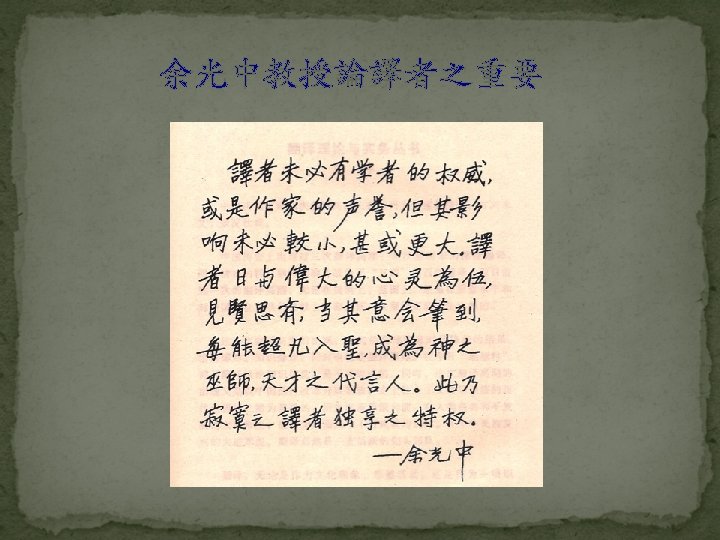 余光中教授論譯者之重要
譯者未必有学者的权威,
或是作家的声誉,但其影
响未必較小,甚或更大。譯
者日与偉大的心灵為伍,
見賢思齊,当其意会筆到,
每能超凡入聖,成為神之
巫師,天才之代言人。此乃
寂寞之譯者独享之特权。
—余光中